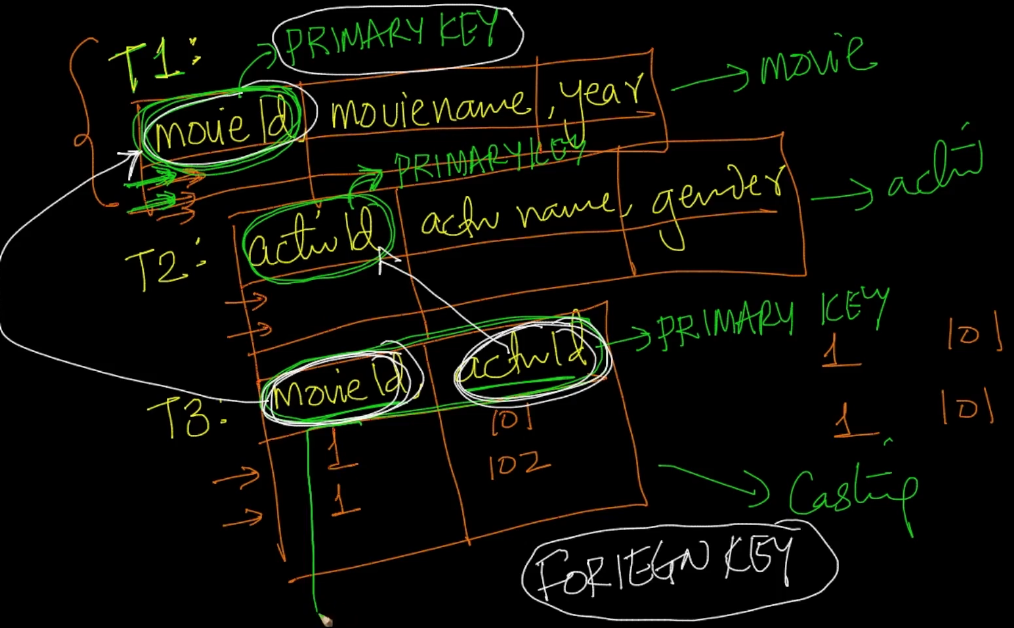 T1:
PRIMARY KEY
movie Id, moviename, year
movie
PRIMARY KEY
T2:
actor Id, actor name, gender
actor
T3:
movie Id, actor Id
PRIMARY KEY
1 101
1 101
1 102
1
101
Casting
FORIEGN KEY